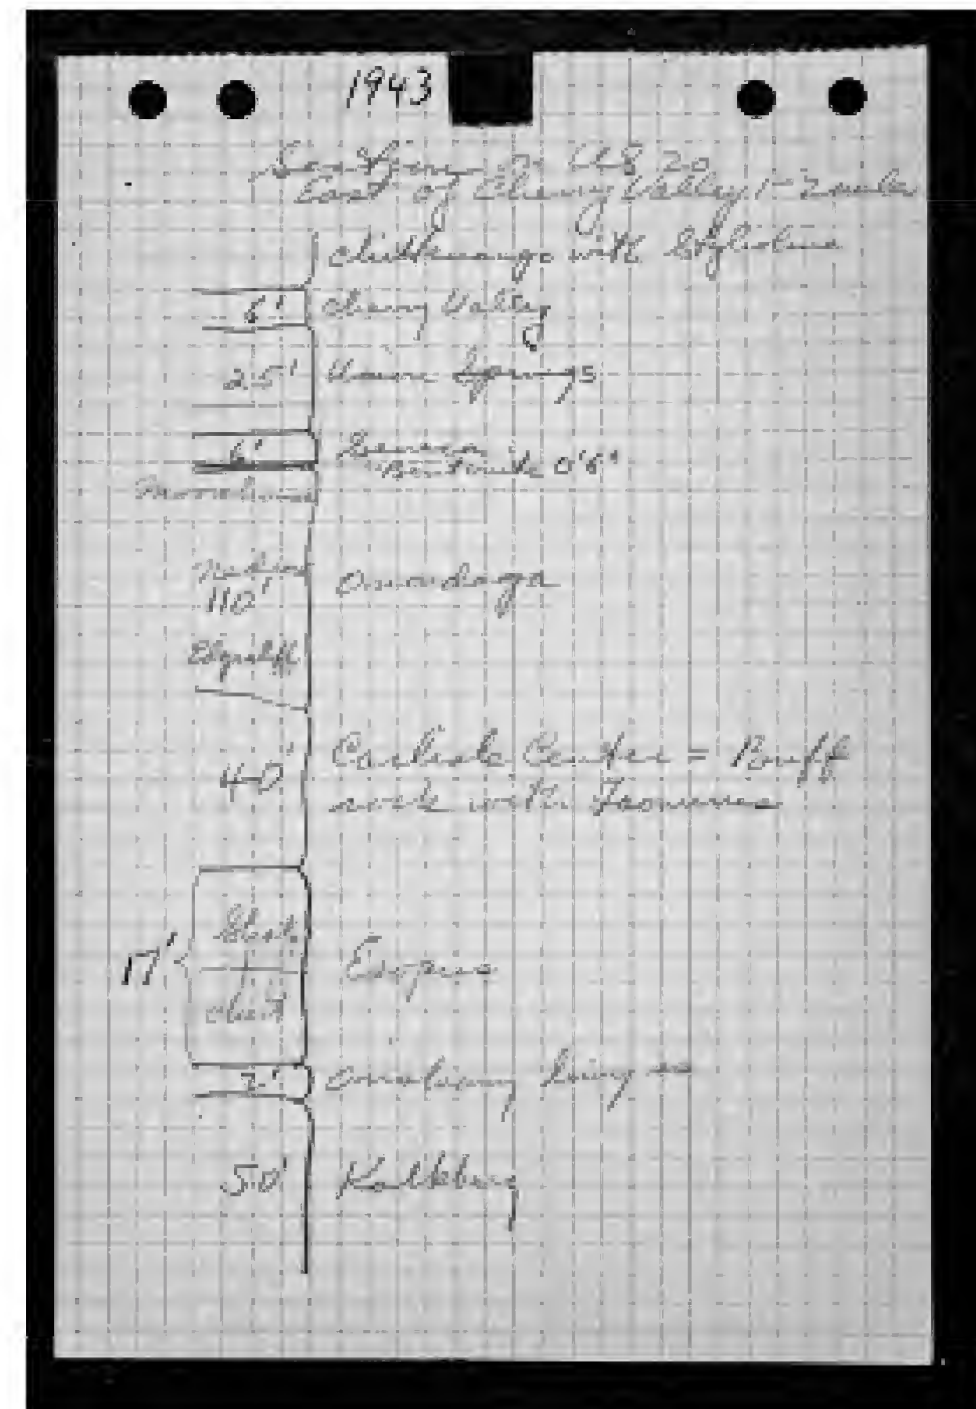 1943
Section on US 20
East of Cherry Valley 1-2 miles
Chittenango with Styliolina
6' Cherry Valley
25' Union Springs
6' Seneca
Bentonite 0'6"
Moorehouse
Nedrow
110' Onondaga
Edgecliff
40' Carlisle Center = Buff
rock with Taonurus
17' Shale Esopus
chert
2' Oriskany limy ss
50' Kalkberg